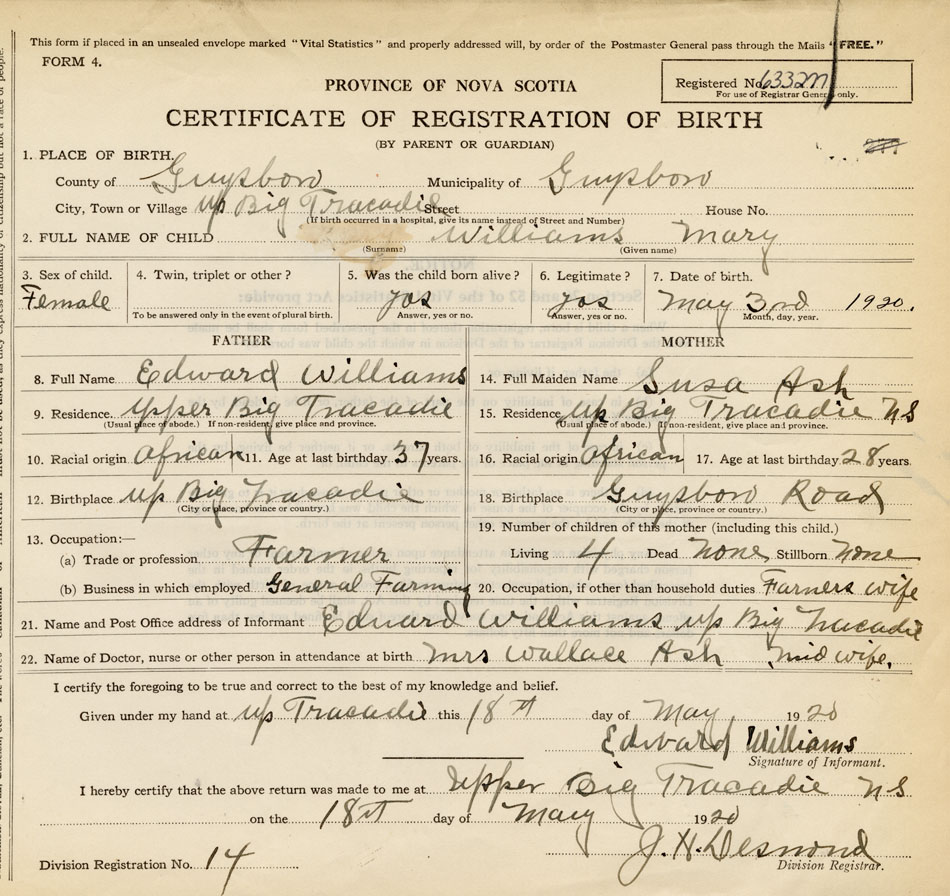 This form if placed in an unsealed envelope marked "Vital Statistics" and properly addressed will, by order of the Postmaster General pass through the Mails "FREE."
FORM 4.
PROVINCE OF NOVA SCOTIA
Registered No. 633271
For use of Registrar General only.
CERTIFICATE OF REGISTRATION OF BIRTH
(BY PARENT OR GUARDIAN)
1. PLACE OF BIRTH.
County of Guysboro Municipality of Guysboro
City, Town or Village up Big Tracadie Street House No.
(If birth occurred in a hospital, give its name instead of Street and Number)
2. FULL NAME OF CHILD Williams Mary
(Surname) (Given name)
3. Sex of child. 4. Twin, triplet or other? 5. Was the child born alive? 6. Legitimate? 7. Date of birth.
Female yas yas May 3rd 1920.
To be answered only in the event of plural birth. Answer, yes or no. Answer, yes or no. Month, day, year.
FATHER MOTHER
8. Full Name Edward Williams 14. Full Maiden Name Susa Ash
9. Residence. Upper Big Tracadie 15. Residence up Big Tracadie NS
(Usual place of abode.) If non-resident, give place and province. (Usual place of abode.) If non-resident, give place and province.
10. Racial origin African 11. Age at last birthday 37 years. 16. Racial origin African 17. Age at last birthday 28 years.
12. Birthplace up Big Tracadie 18. Birthplace Guysboro Road
(City or place, province or country.) (City or place, province or country.)
13. Occupation:— 19. Number of children of this mother (including this child.)
(a) Trade or profession Farmer Living 4 Dead None Stillborn None
(b) Business in which employed General Farming 20. Occupation, if other than household duties Farmers wife
21. Name and Post Office address of Informant Edward Williams up Big Tracadie
22. Name of Doctor, nurse or other person in attendance at birth Mrs Wallace Ash Mid wife.
I certify the foregoing to be true and correct to the best of my knowledge and belief.
Given under my hand at up Tracadie this 18th day of May 1920
Edward Williams
Signature of Informant.
I hereby certify that the above return was made to me at Upper Big Tracadie NS
on the 18th day of May 1920
J. H. Desmond
Division Registration No. 14 Division Registrar.